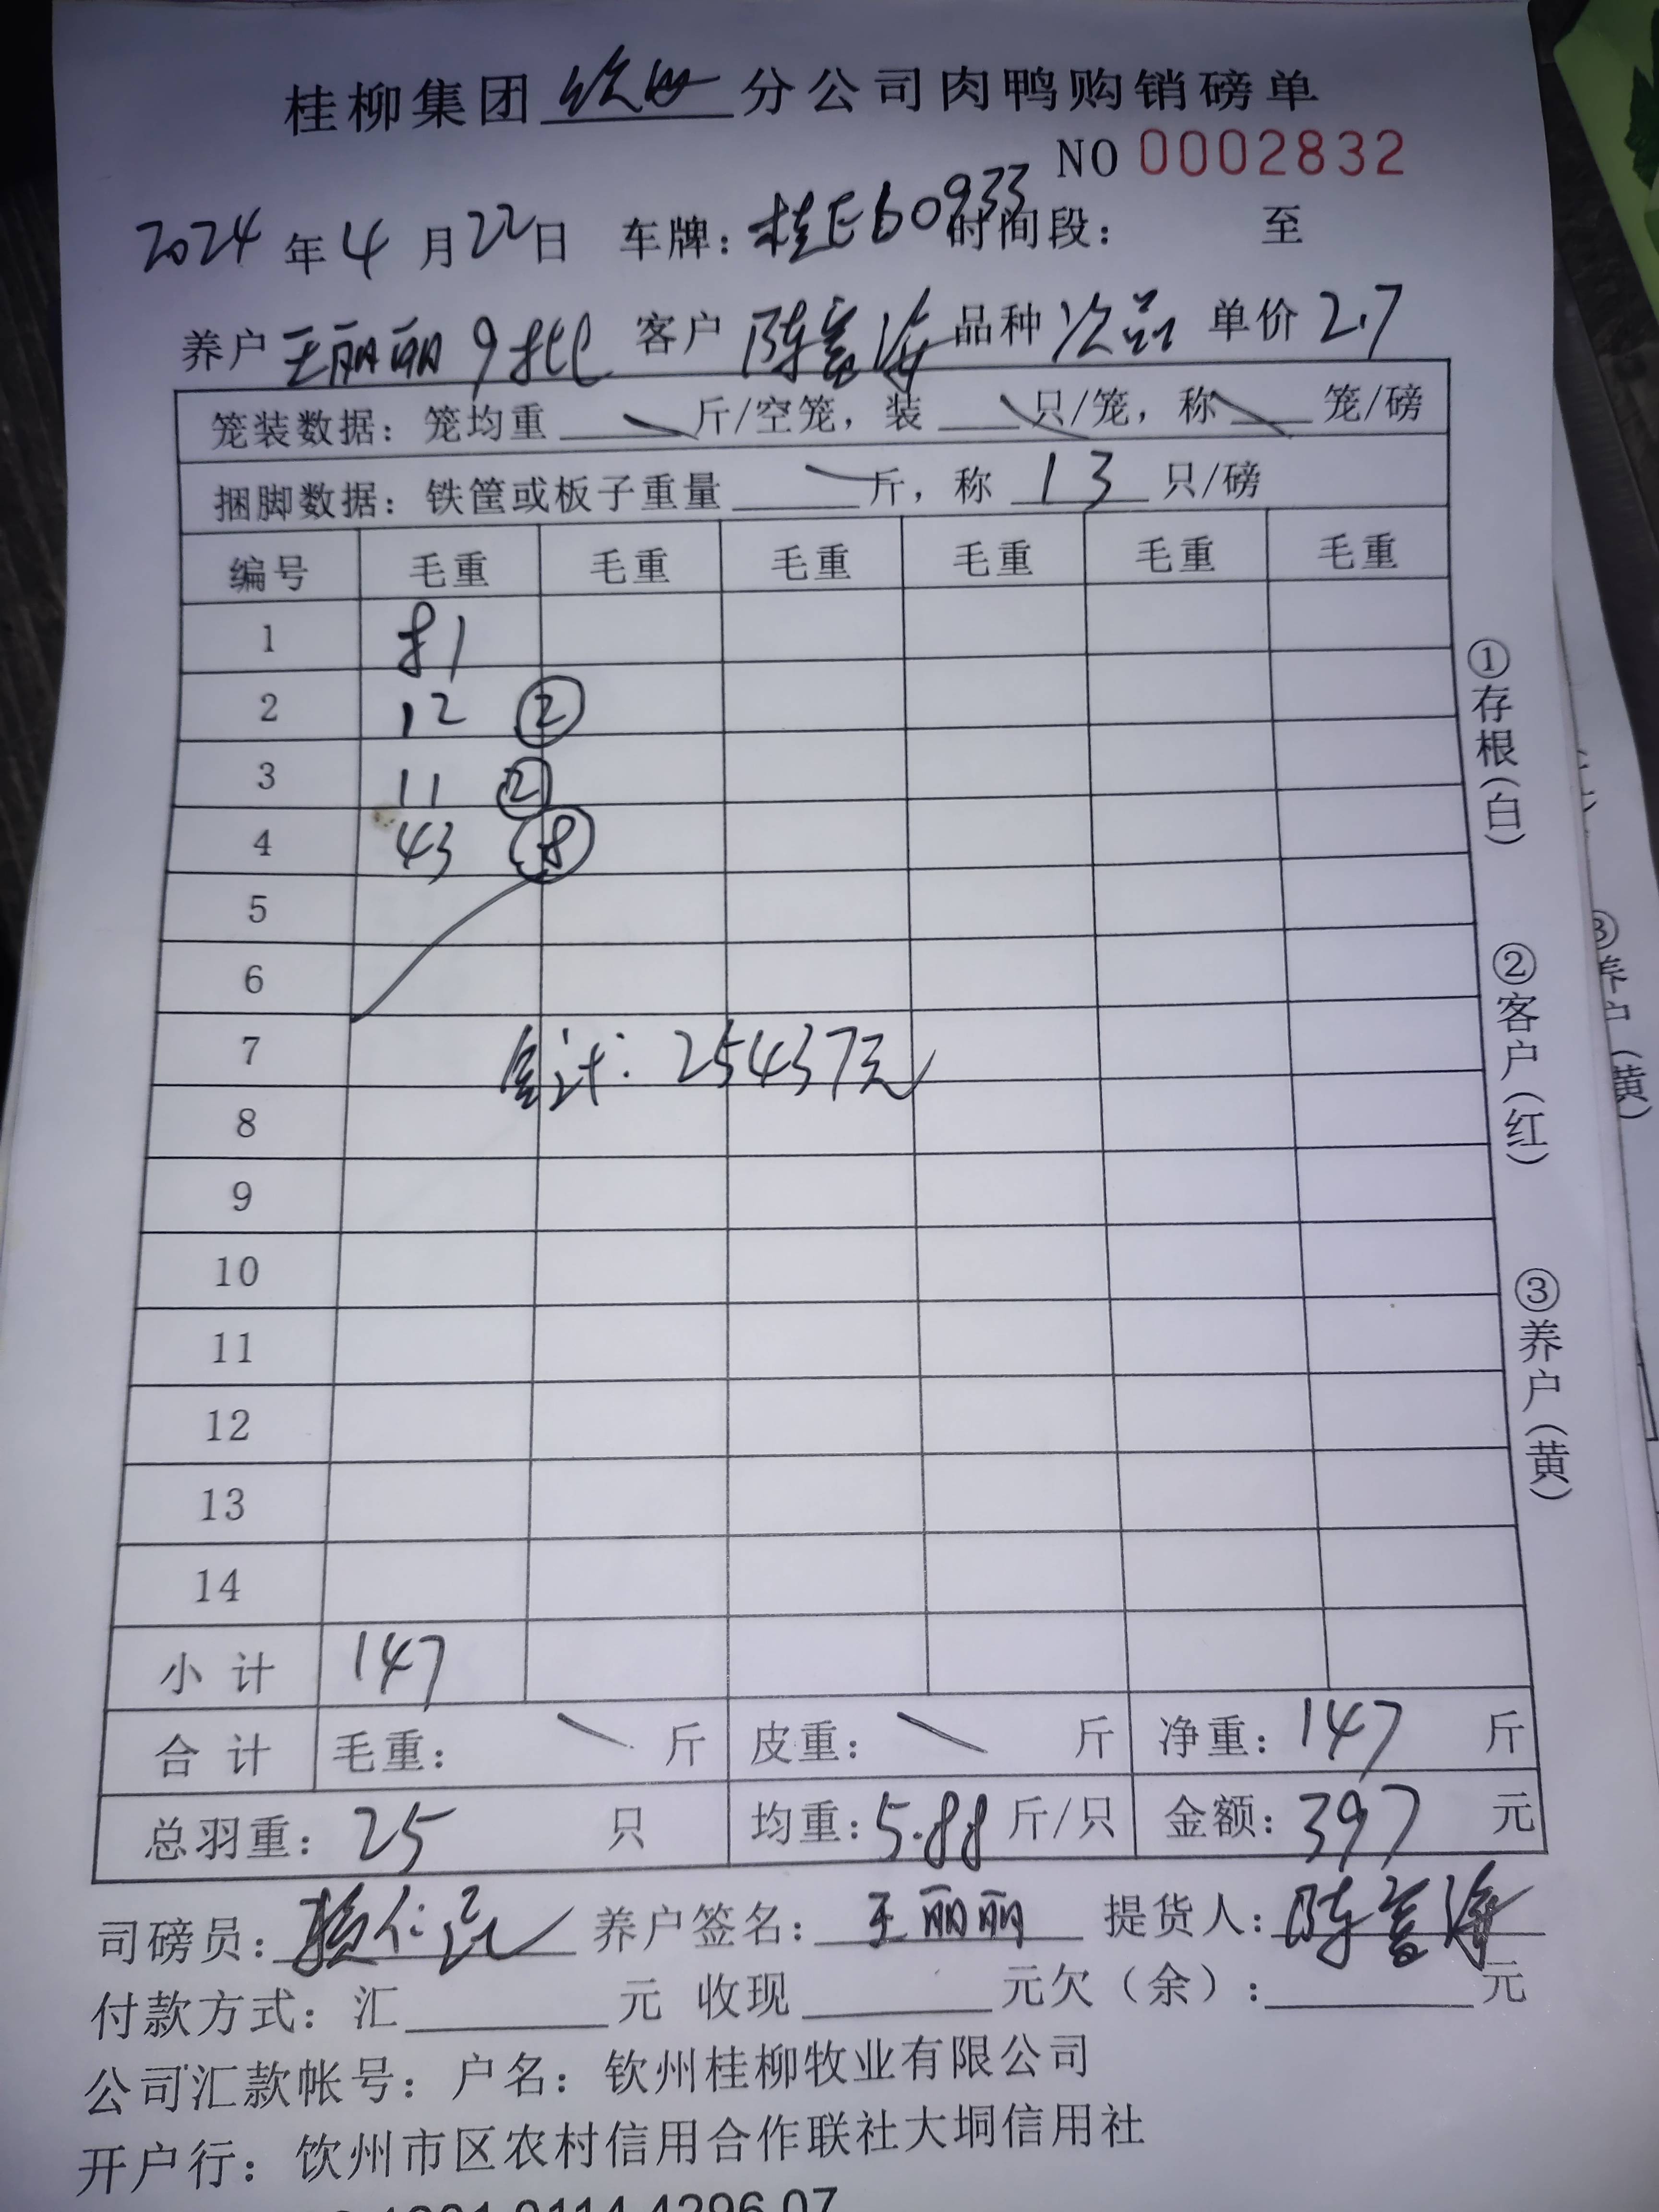 桂柳集团 钦州 分公司肉鸭购销磅单
NO 0002832
2024 年 4 月 22 日 车牌：桂E60933 时间段： 至
养户 王丽丽 9批 客户 陈富海 品种 次品 单价 2.7
笼装数据：笼均重 斤/空笼，装 只/笼，称 笼/磅
捆脚数据：铁筐或板子重量 斤，称 13 只/磅
编号 毛重 毛重 毛重 毛重 毛重 毛重
1 81
2 12 ②
3 11 ②
4 43 ⑧
5
6
7 合计：25437元
8
9
10
11
12
13
14
小 计 147
合 计 毛重： 斤 皮重： 斤 净重：147 斤
总羽重：25 只 均重：5.88 斤/只 金额：397 元
司磅员： 养户签名：王丽丽 提货人：陈富海
付款方式：汇 元 收现 元欠（余）： 元
公司汇款帐号：户名：钦州桂柳牧业有限公司
开户行：钦州市区农村信用合作联社大垌信用社
①存根（白）
②客户（红）
③养户（黄）
③养户（黄）